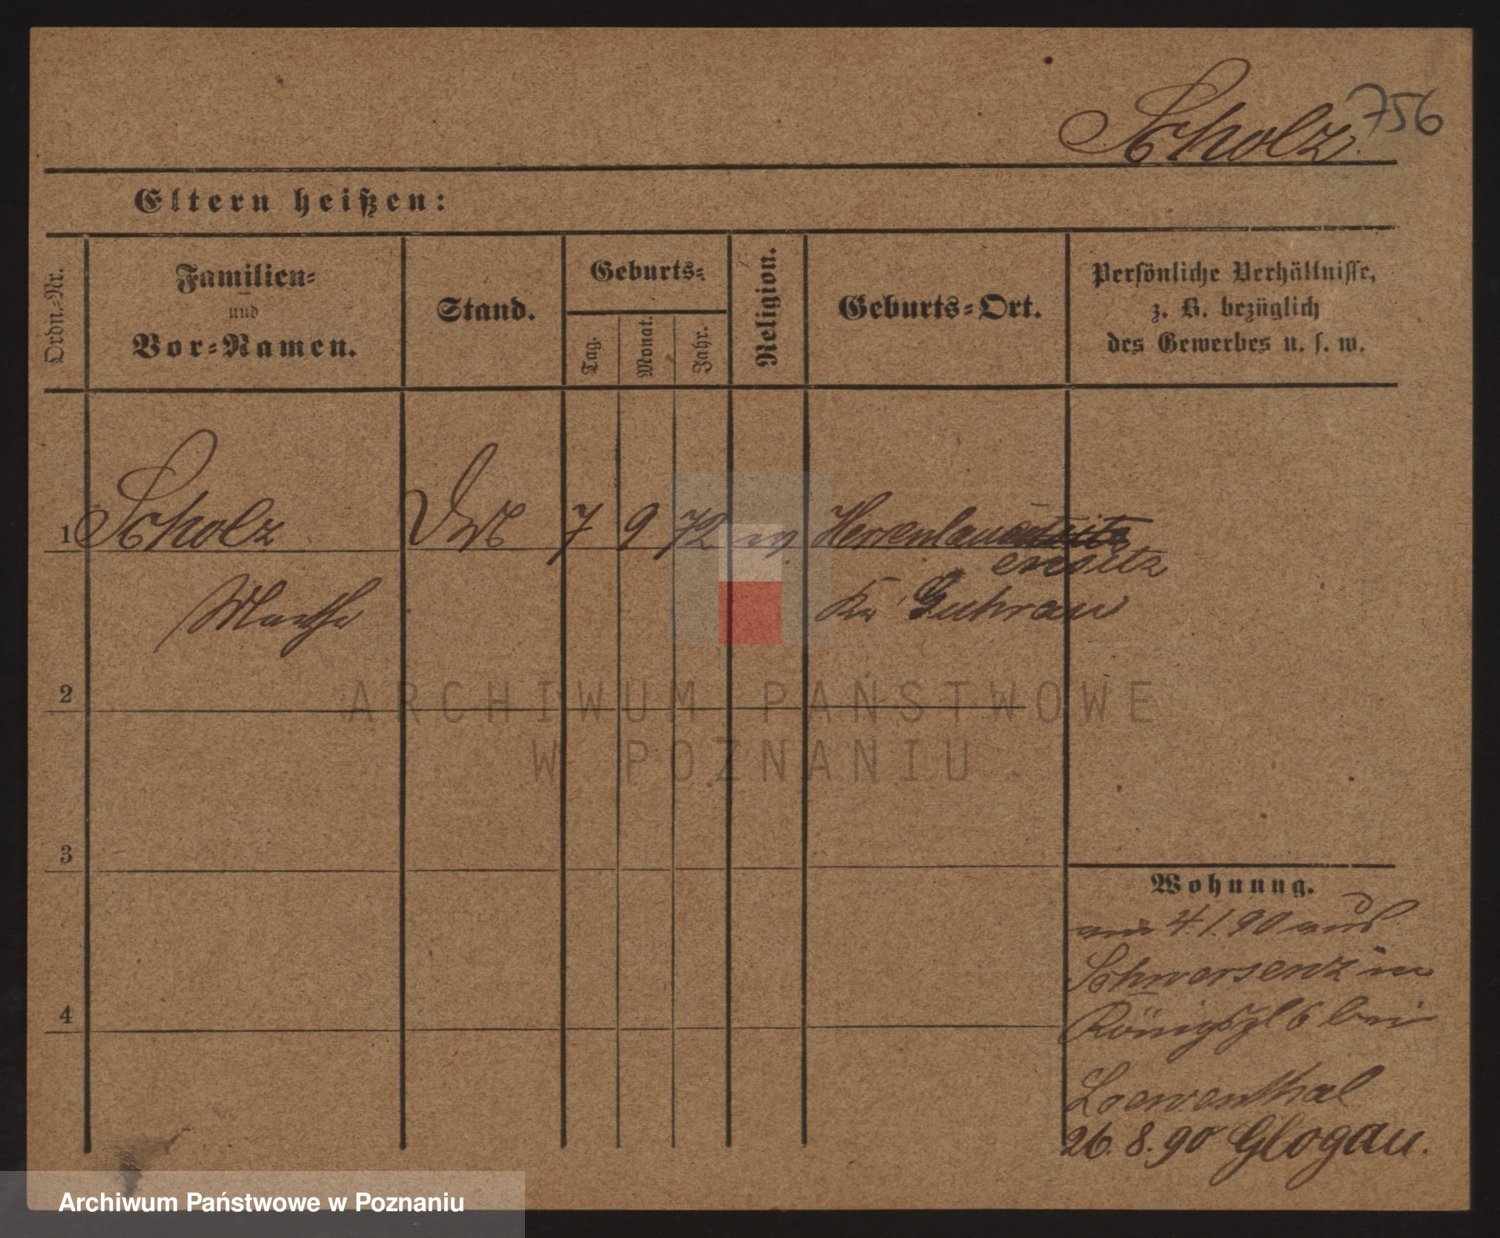 Scholz. 756
Eltern heißen:
Ordn.-Nr.
Familien-
und
Vor-Namen.
Stand.
Geburts-
Tag.
Monat.
Jahr.
Religion.
Geburts-Ort.
Persönliche Verhältnisse,
z. B. bezüglich
des Gewerbes u. s. w.
1 Scholz 7 9 72 ev.
ensitz
Marthe Kr Guhrau
2
ARCHIWUM PAŃSTWOWE
W POZNANIU
3
Wohnung.
am 4/1.90 aus
Schwersenz in
Königspl 6 bei
4
Loewenthal
26.8.90 Glogau.
Archiwum Państwowe w Poznaniu